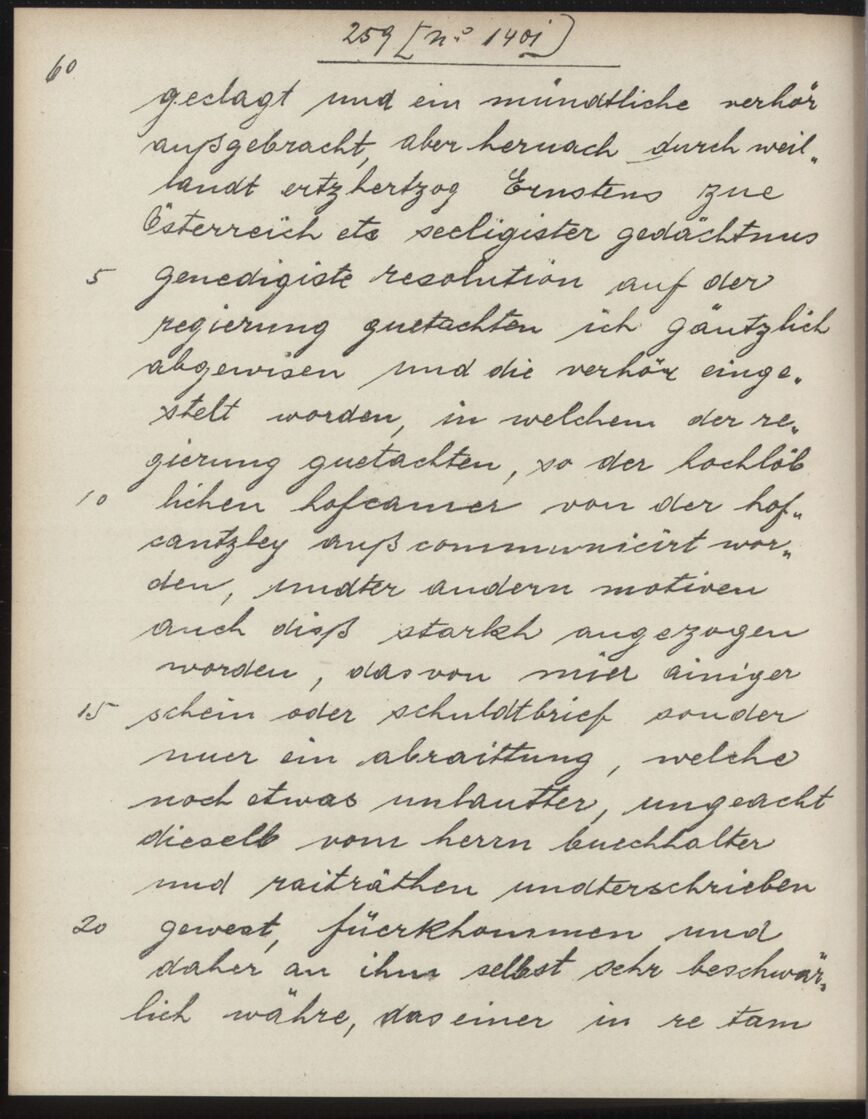 259 [nº 140i]
60
geclagt und ein mündtliche verhör
außgebracht, aber hernach durch weil„
landt ertzhertzog Ernstens zue
Österreich etc seeligister gedächtnus
5 genedigiste resolution auf der
regierung guetachten ich gäntzlich
abgewisen und die verhör einge„
stelt worden, in welchem der re„
gierung guetachten, so der hochlöb
10 lichen hofcamer von der hof„
cantzley auß communicirt wor„
den, undter andern motiven
auch diß starkh angezogen
worden, das von mier ainiger
15 schein oder schuldtbrief sonder
nuer ein abraittung, welche
noch etwas unlautter, ungeacht
dieselb vom herrn buechhalter
und raiträthen undterschrieben
20 gewest, füerkhommen und
daher an ihm selbst sehr beschwär„
lich währe, das einer in re tam